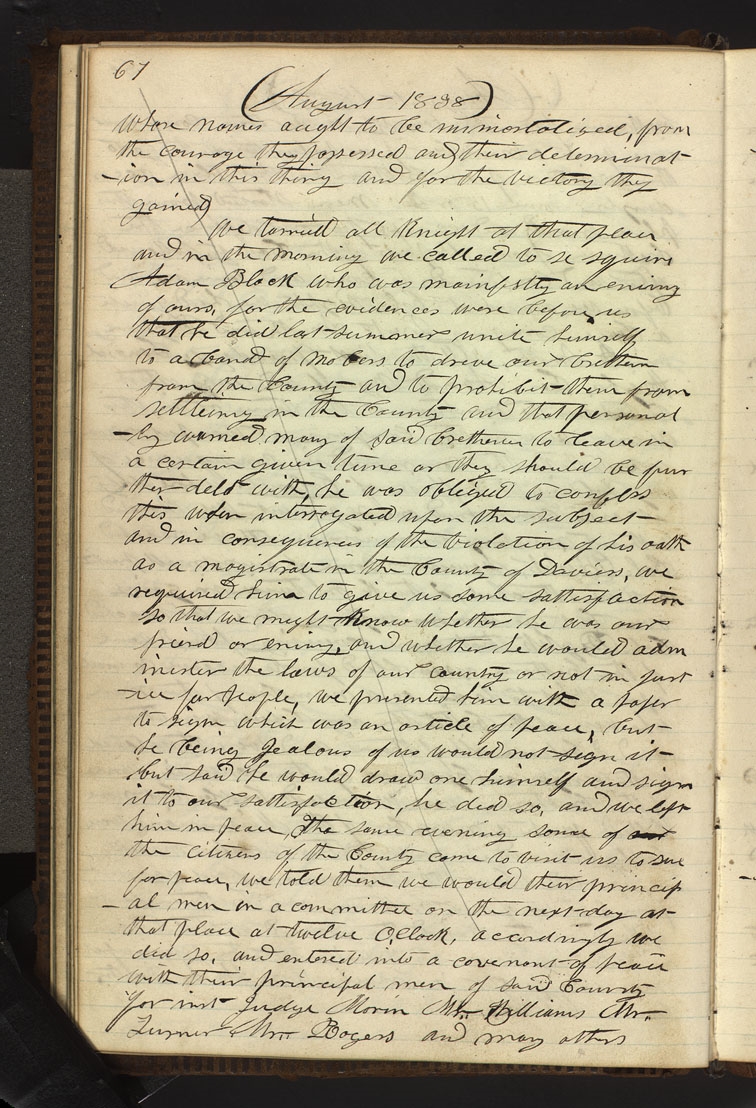 67
(August 1838)
whose names aught to be immortalized, from
the courage they possessed and their determinat-
-ion in this thing and for the victory they
gained)
we tarried all Knight at that place
and in the morning we called to se squire
Adam Black who was mainfstly an enimy
of ours, for the evidences were before us
that he did last summer unite himself
to a band of mobers to drive our brethern
from the County and to prohibit them from
settleing in the County and that personal
-ly warned many of said bretheren to leave in
a certain given time or they should be fur
ther delt with, he was obliged to confess
this when interrogated upon the subject
and in consequence of the violation of his oath
as a magistrate in the County of Daviess, we
required him to give us some sattisfaction
so that we might know whether he was our
friend or enimy, and whether he would adm
inister the laws of our country or not in just
-ice for people, we presented him with a paper
to sign which was an article of peace, but
he being Jealous of us would not sign it
but said he would draw one himself and sign
it to our sattisfaction, he did so, and we left
him in peace, the same evening some of
the citizens of the County came to visit us to sue
for peace, we told them we would their princip
-al men in a committee on the next day at
that place at twelve O,Clock, accordingly we
did so, and entered into a covenant of peace
with their principal men of said County
for inst Judge Morin Mr. Williams Mr.
Turner, Mr. Rogers and many others